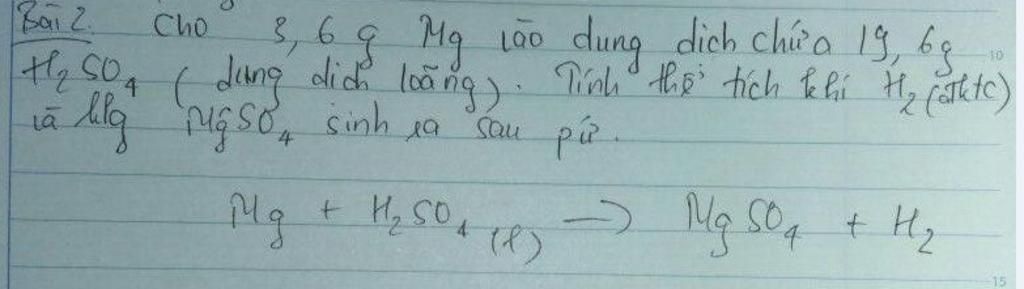 Bài 2. Cho 3,6g Mg vào dung dịch chứa 19,6g
H₂SO₄ (dung dịch loãng). Tính thể tích khí H₂ (đktc)
và klg MgSO₄ sinh ra sau pứ.
Mg + H₂SO₄ (l) → MgSO₄ + H₂